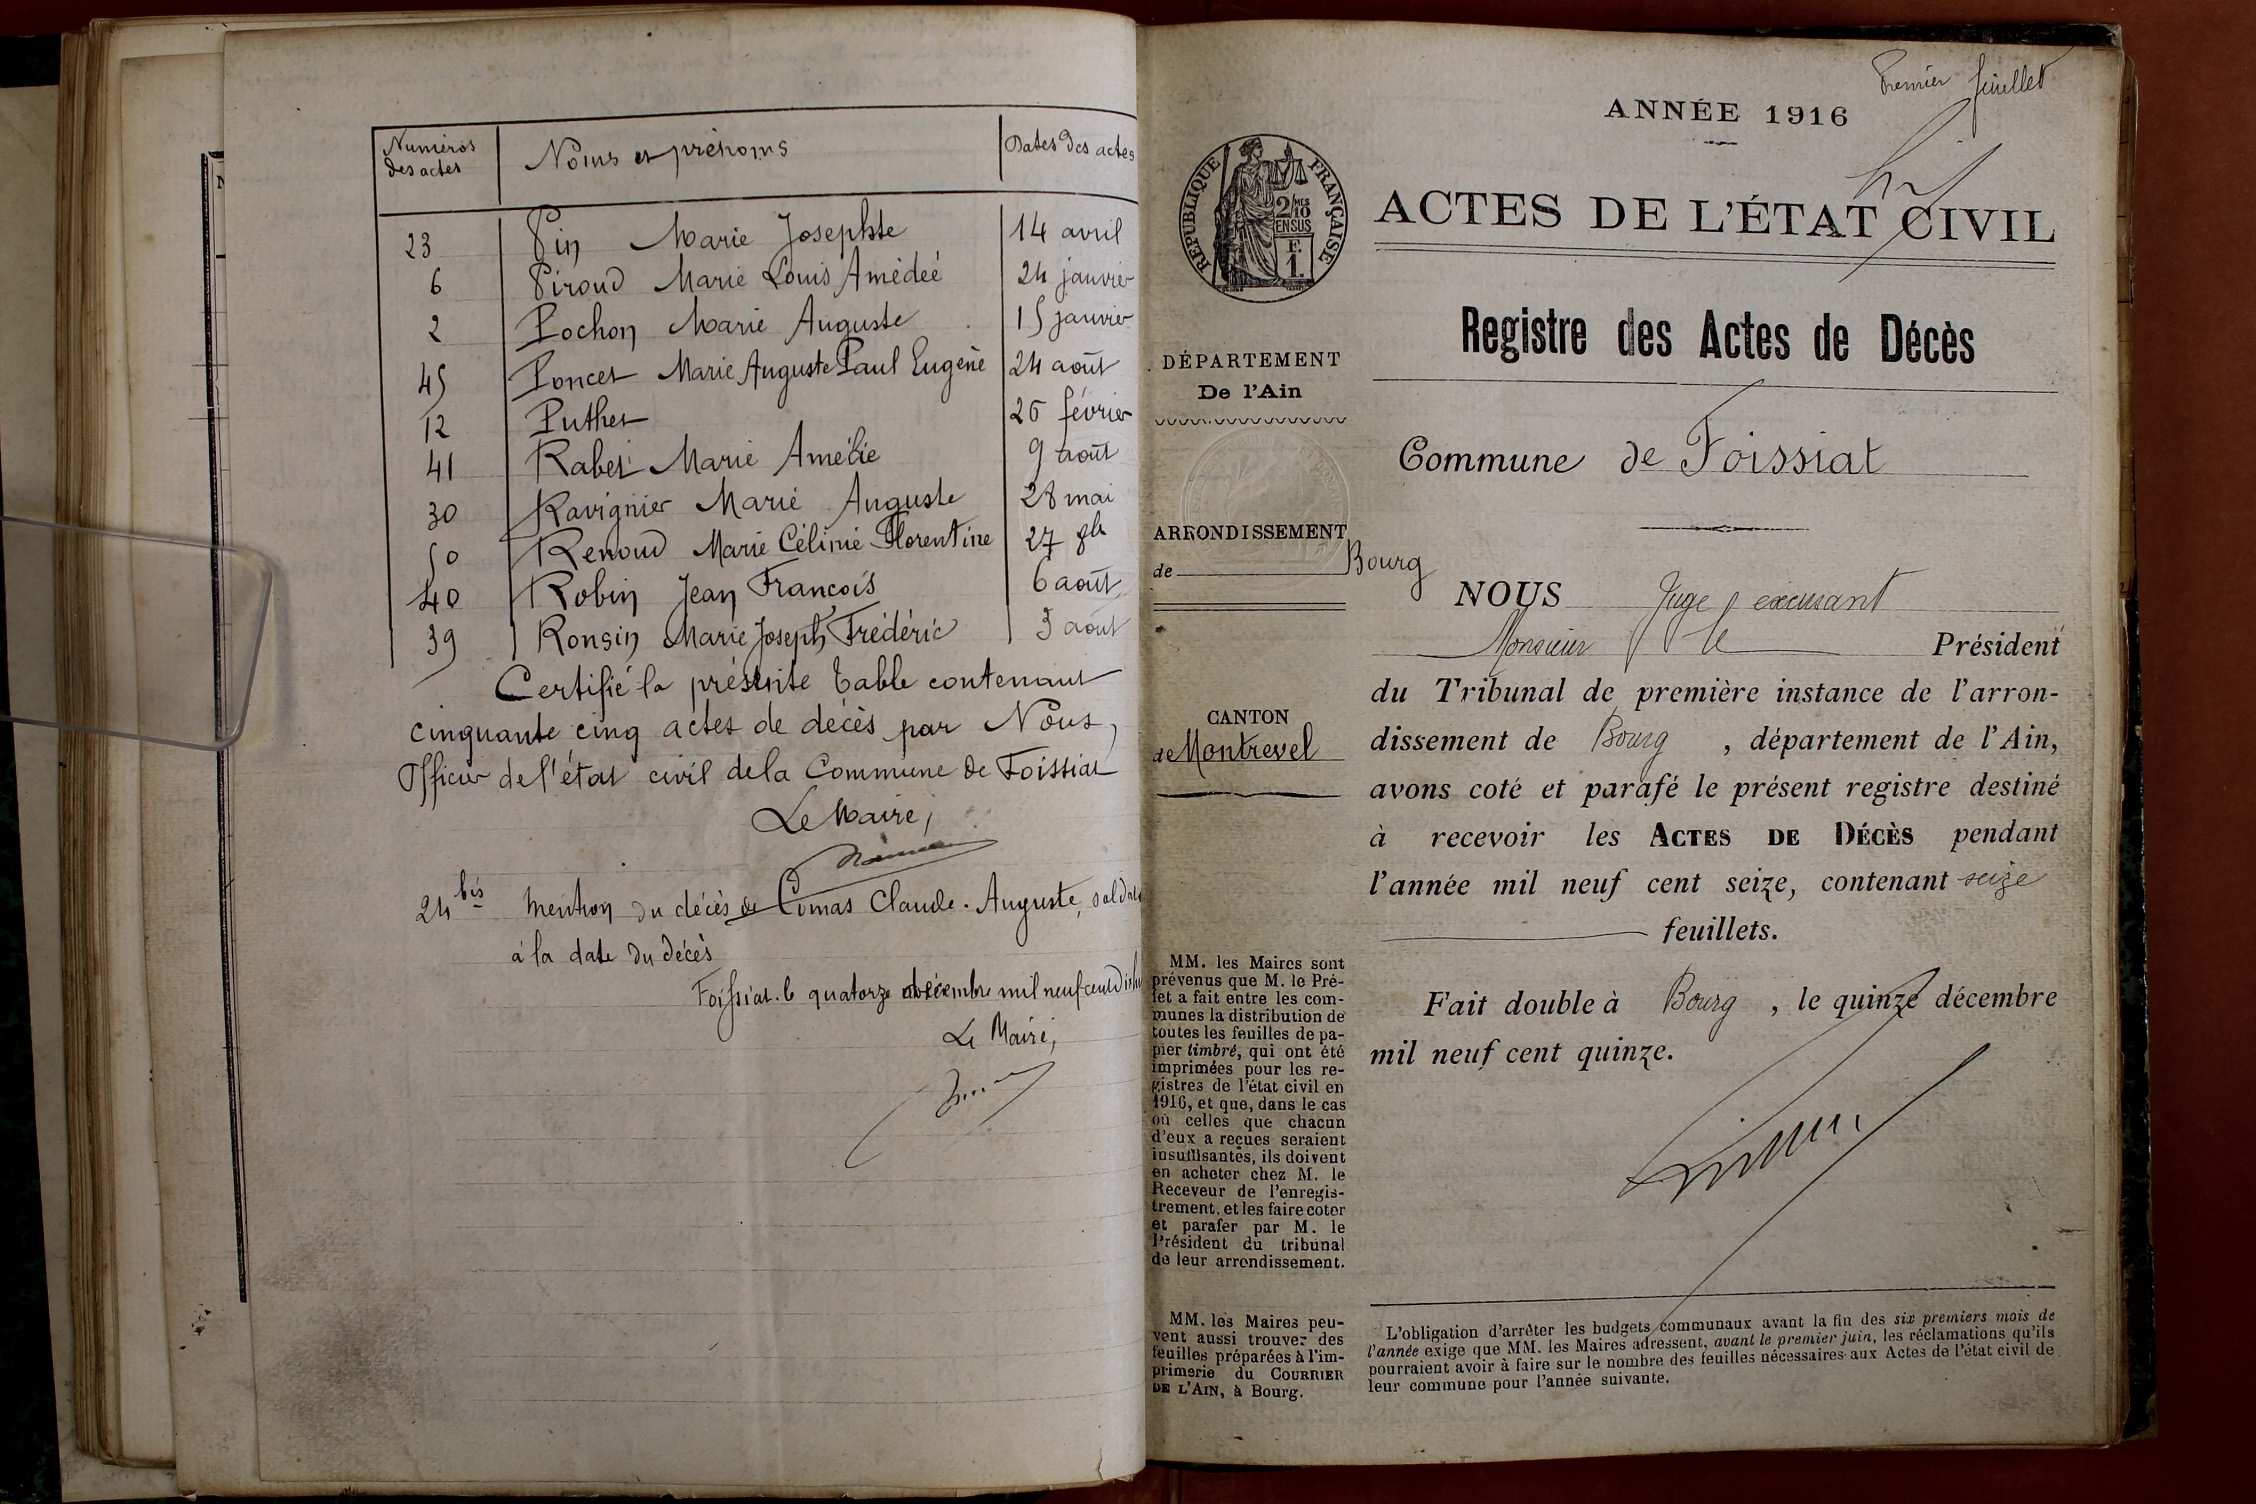 Numéros des actes | Noms et prénoms | Dates des actes
23 | Pin Marie Josephte | 14 avril
6 | Piroud Marie Louis Amédée | 24 janvier
2 | Pochon Marie Auguste | 15 janvier
45 | Poncet Marie Auguste Paul Eugène | 24 août
12 | Puthet | 26 février
41 | Rabet Marie Amélie | 9 août
30 | Ravignier Marie Auguste | 28 mai
50 | Renoud Marie Célinie Florentine | 27 8bre
40 | Robin Jean François | 6 août
39 | Ronsin Marie Joseph Frédéric | 3 août
Certifié la présente table contenant
cinquante cinq actes de décès par Nous,
Officier de l'état civil de la Commune de Foissiat
Le Maire,
24 bis mention du décès de Comas Claude-Auguste, soldat
à la date du décès
Foissiat le quatorze décembre mil neuf cent
Le Maire,
Premier feuillet
ANNÉE 1916
RÉPUBLIQUE FRANÇAISE
2/10 MES
EN SUS
F.
1.
ACTES DE L'ÉTAT CIVIL
Registre des Actes de Décès
DÉPARTEMENT
De l'Ain
ARRONDISSEMENT
de Bourg
CANTON
de Montrevel
MM. les Maires sont
prévenus que M. le Pré-
fet a fait entre les com-
munes la distribution de
toutes les feuilles de pa-
pier timbré, qui ont été
imprimées pour les re-
gistres de l'état civil en
1916, et que, dans le cas
où celles que chacun
d'eux a reçues seraient
insuffisantes, ils doivent
en acheter chez M. le
Receveur de l'enregis-
trement, et les faire coter
et parafer par M. le
Président du tribunal
de leur arrondissement.
MM. les Maires peu-
vent aussi trouver des
feuilles préparées à l'im-
primerie du COURRIER
DE L'AIN, à Bourg.
Commune de Foissiat
NOUS Juge excusant
Monsieur le Président
du Tribunal de première instance de l'arron-
dissement de Bourg, département de l'Ain,
avons coté et parafé le présent registre destiné
à recevoir les ACTES DE DÉCÈS pendant
l'année mil neuf cent seize, contenant seize
feuillets.
Fait double à Bourg, le quinze décembre
mil neuf cent quinze.
L'obligation d'arrêter les budgets communaux avant la fin des six premiers mois de
l'année exige que MM. les Maires adressent, avant le premier juin, les réclamations qu'ils
pourraient avoir à faire sur le nombre des feuilles nécessaires aux Actes de l'état civil de
leur commune pour l'année suivante.